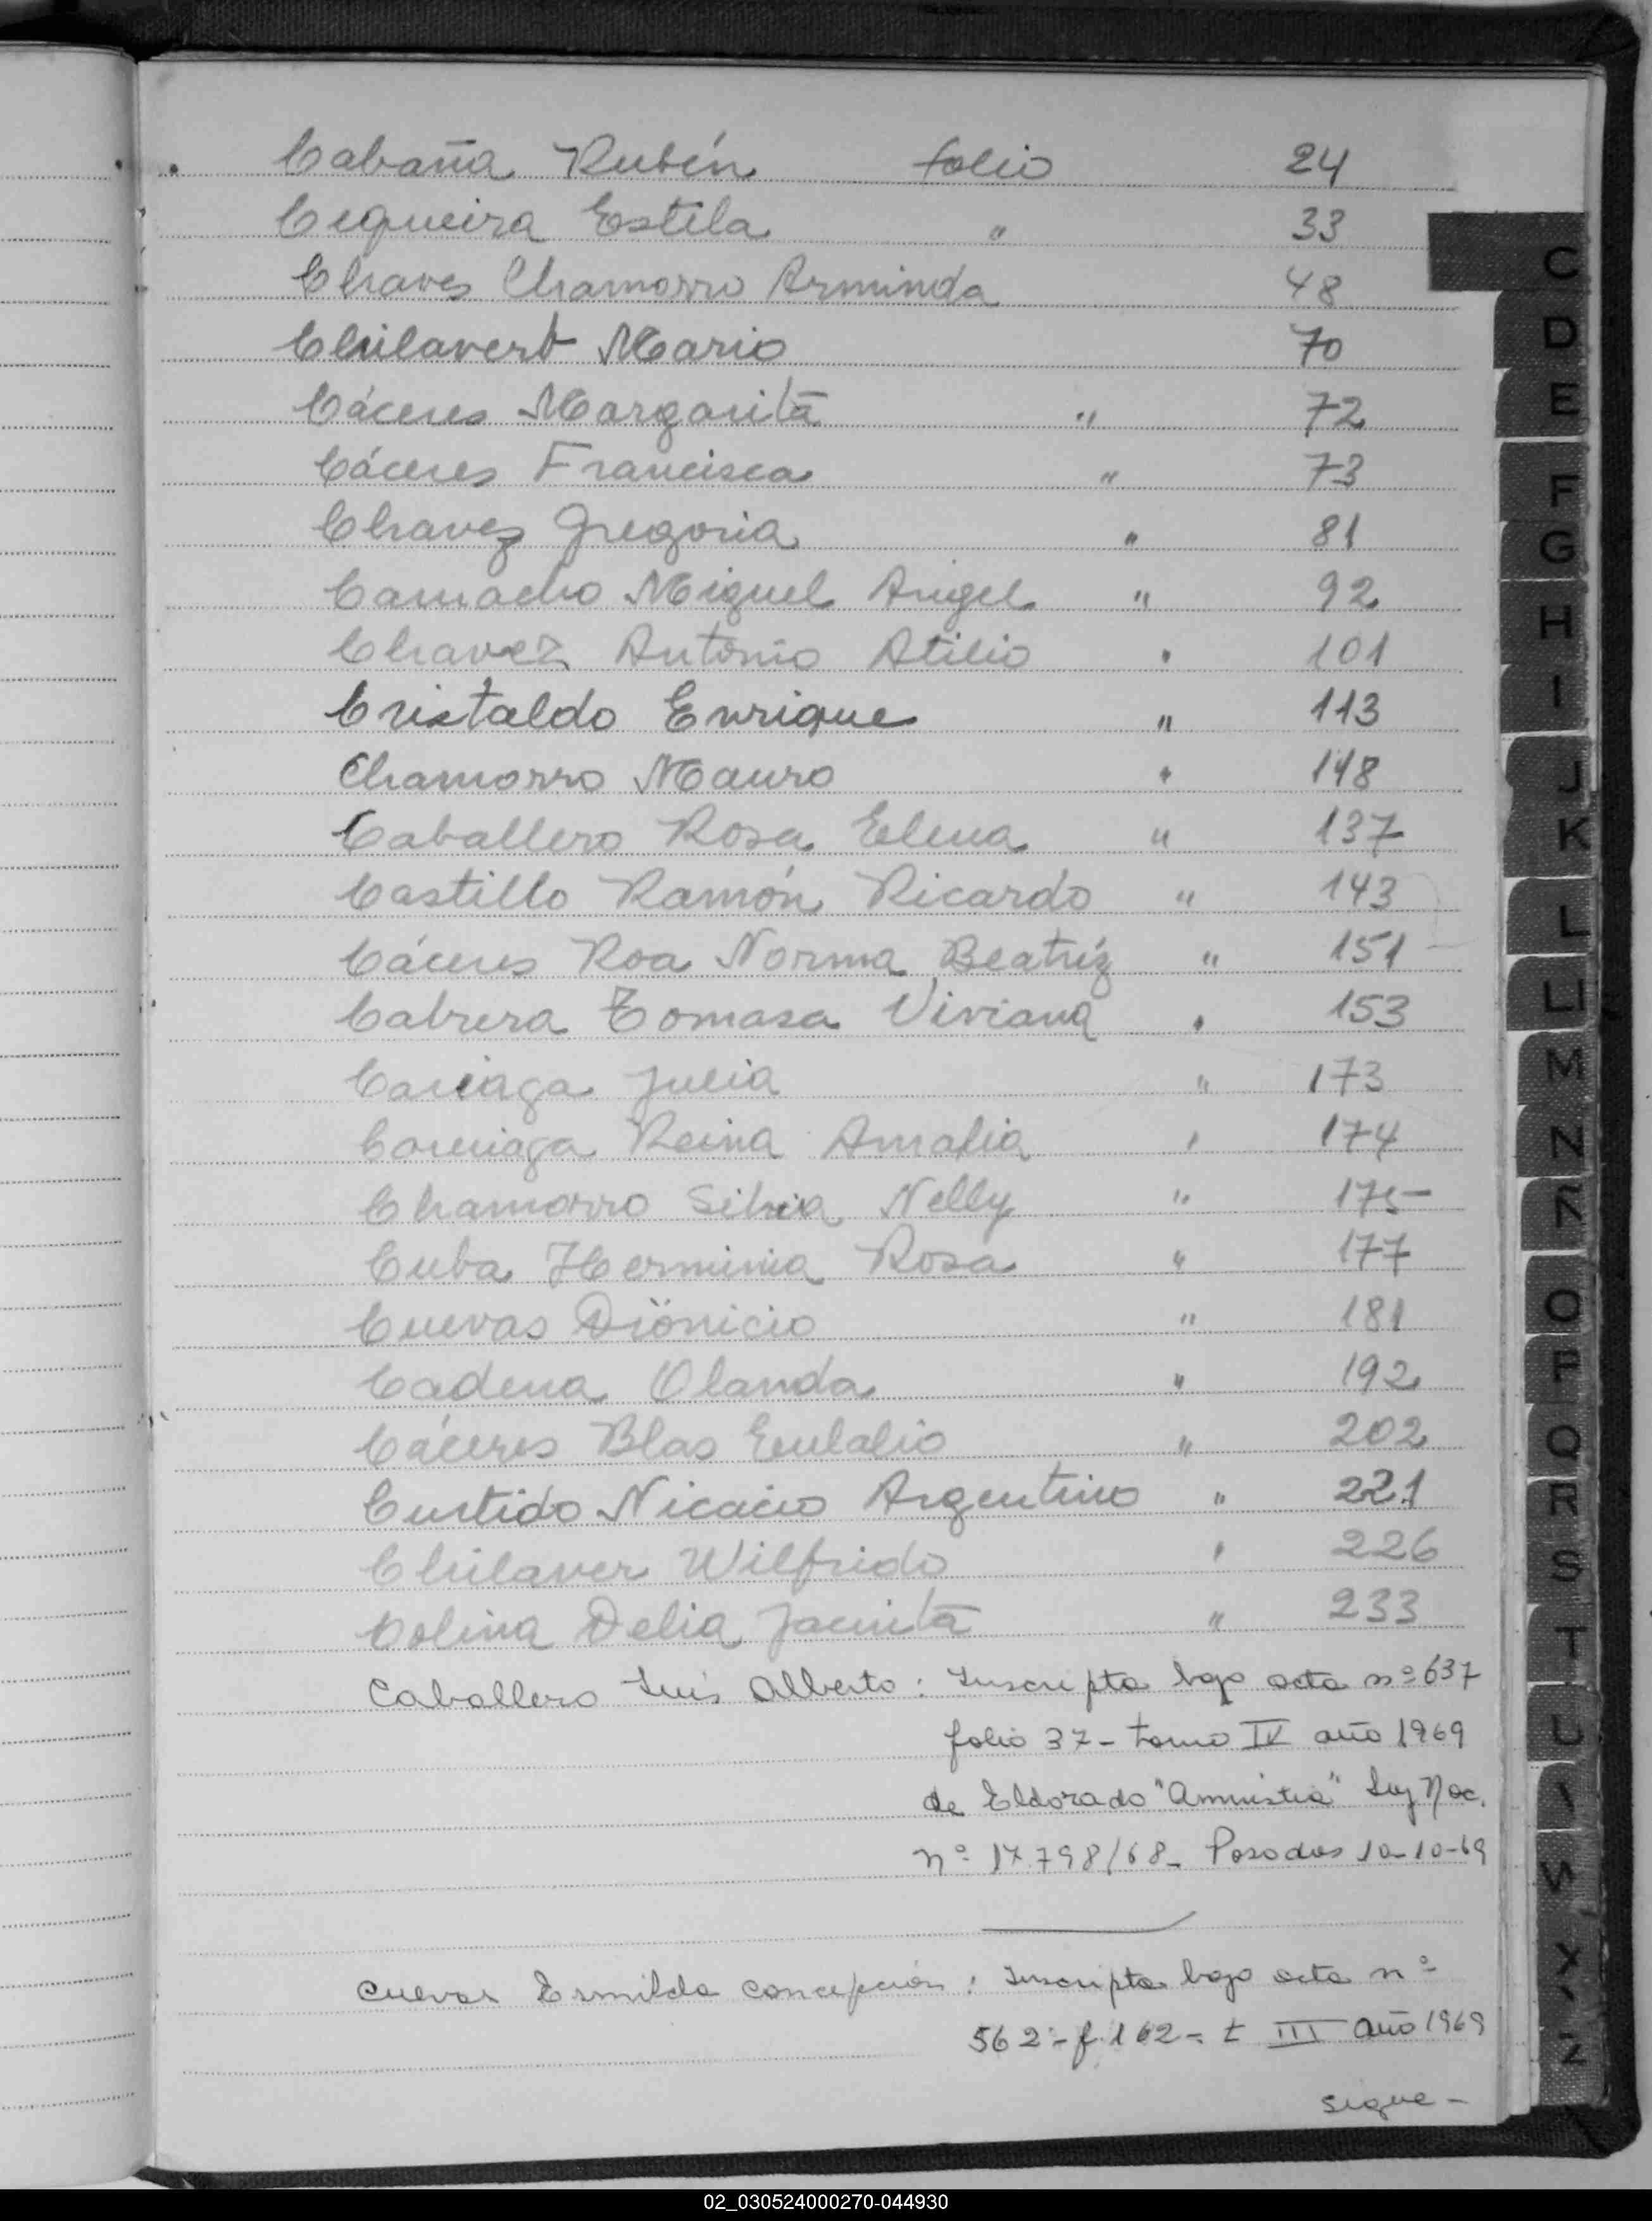 Cabaña Rubén folio 24
Cequeira Estela " 33
Chaves Chamorro Arminda 48
Chilavert Mario 70
Cáceres Margarita " 72
Cáceres Francisca " 73
Chavez Gregoria " 81
Camacho Miguel Angel " 92
Chavez Antonio Atilio " 101
Cristaldo Enrique " 113
Chamorro Mauro " 118
Caballero Rosa Elena " 137
Castillo Ramón Ricardo " 143
Cáceres Roa Norma Beatríz " 151
Cabrera Tomasa Viviana " 153
Cariaga Julia " 173
Reina Amalia " 174
Chamorro Silvia Nelly " 175
Cuba Herminia Rosa " 177
Cuevas Dionicio " 181
Cadena Olanda " 192
Cáceres Blas Eulalio " 202
Curtido Nicacio Argentino " 221
Chilaver Wilfrido " 226
Colina Delia Jacinta " 233
Caballero Luis Alberto : Inscripta bajo acta nº 637
folio 37 - tomo IV año 1969
de Eldorado "Amnistia" Ley Nac.
nº 17.798/68 - Posadas 10-10-69
Cuevas Ermilda Concepción : Inscripta bajo acta nº
562 - f. 162 - t III año 1969
sigue -
C
D
E
F
G
H
I
J
K
L
LL
M
N
Ñ
O
P
Q
R
S
T
U
X
Z
02_030524000270-044930